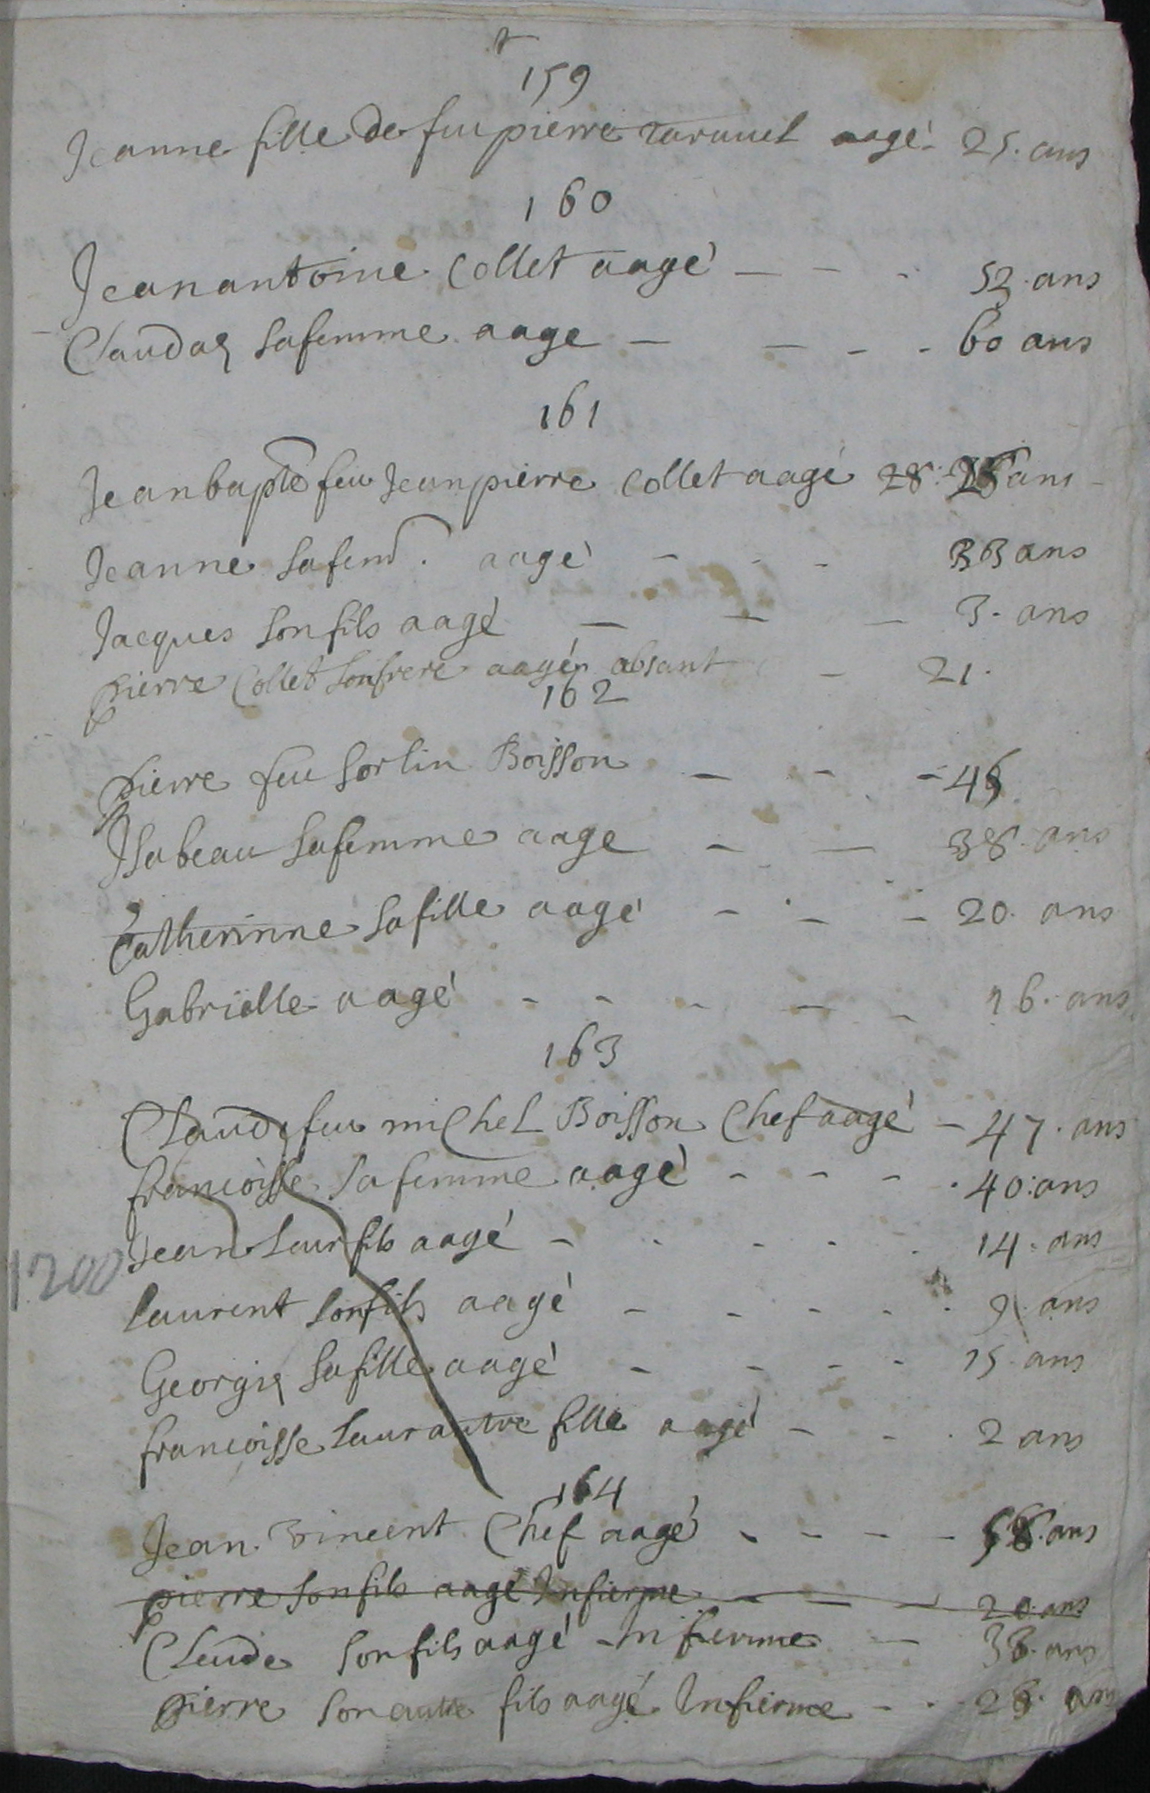 159
Jeanne fille de feu pierre taravel aagé 25. ans
160
Jean antoine Collet aagé 52. ans
Clauda sa femme aage 60 ans
161
Jean bapte feu Jean pierre Collet aagé 28. ans
Jeanne sa fem. aagé 33 ans
Jacques son fils aagé 3. ans
pierre Collet son frere aagé absant 21.
162
pierre feu sorlin Boisson
Isabeau sa femme aage 38 ans
Catherinne sa fille aagé 20. ans
Gabrielle aagé 16. ans
163
Claude feu michel Boisson Chef aagé 47. ans
francoisse sa femme aagé 40: ans
Jean leur fils aagé 14. ans
1200
laurent son fils aagé 9 ans
Georgia sa fille aagé 15 ans
francoisse leur autre fille aagé 2 ans
164
Jean Vincent Chef aagé ans
pierre son fils aagé Infierme 20 ans
Claude son fils aagé Infierme ans
pierre son autre fils aagé Infierme ans